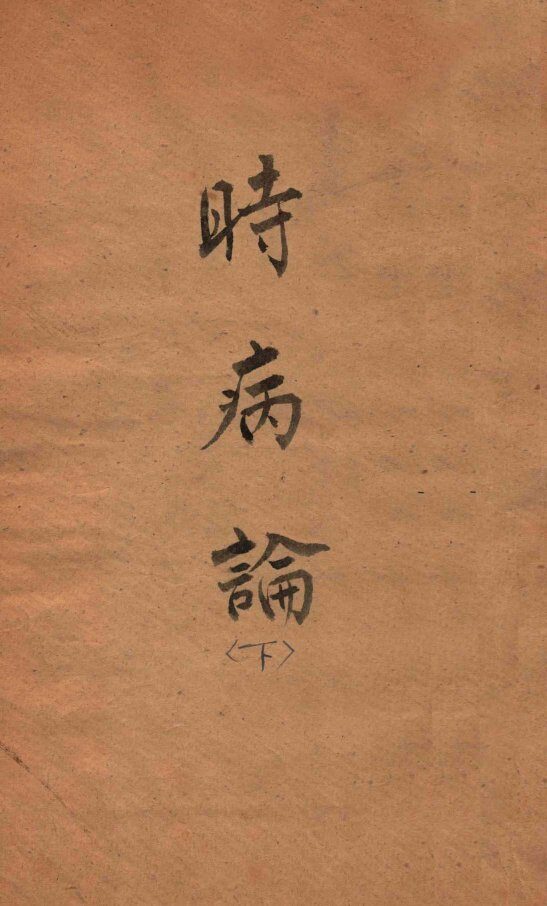 時病論
〈下〉